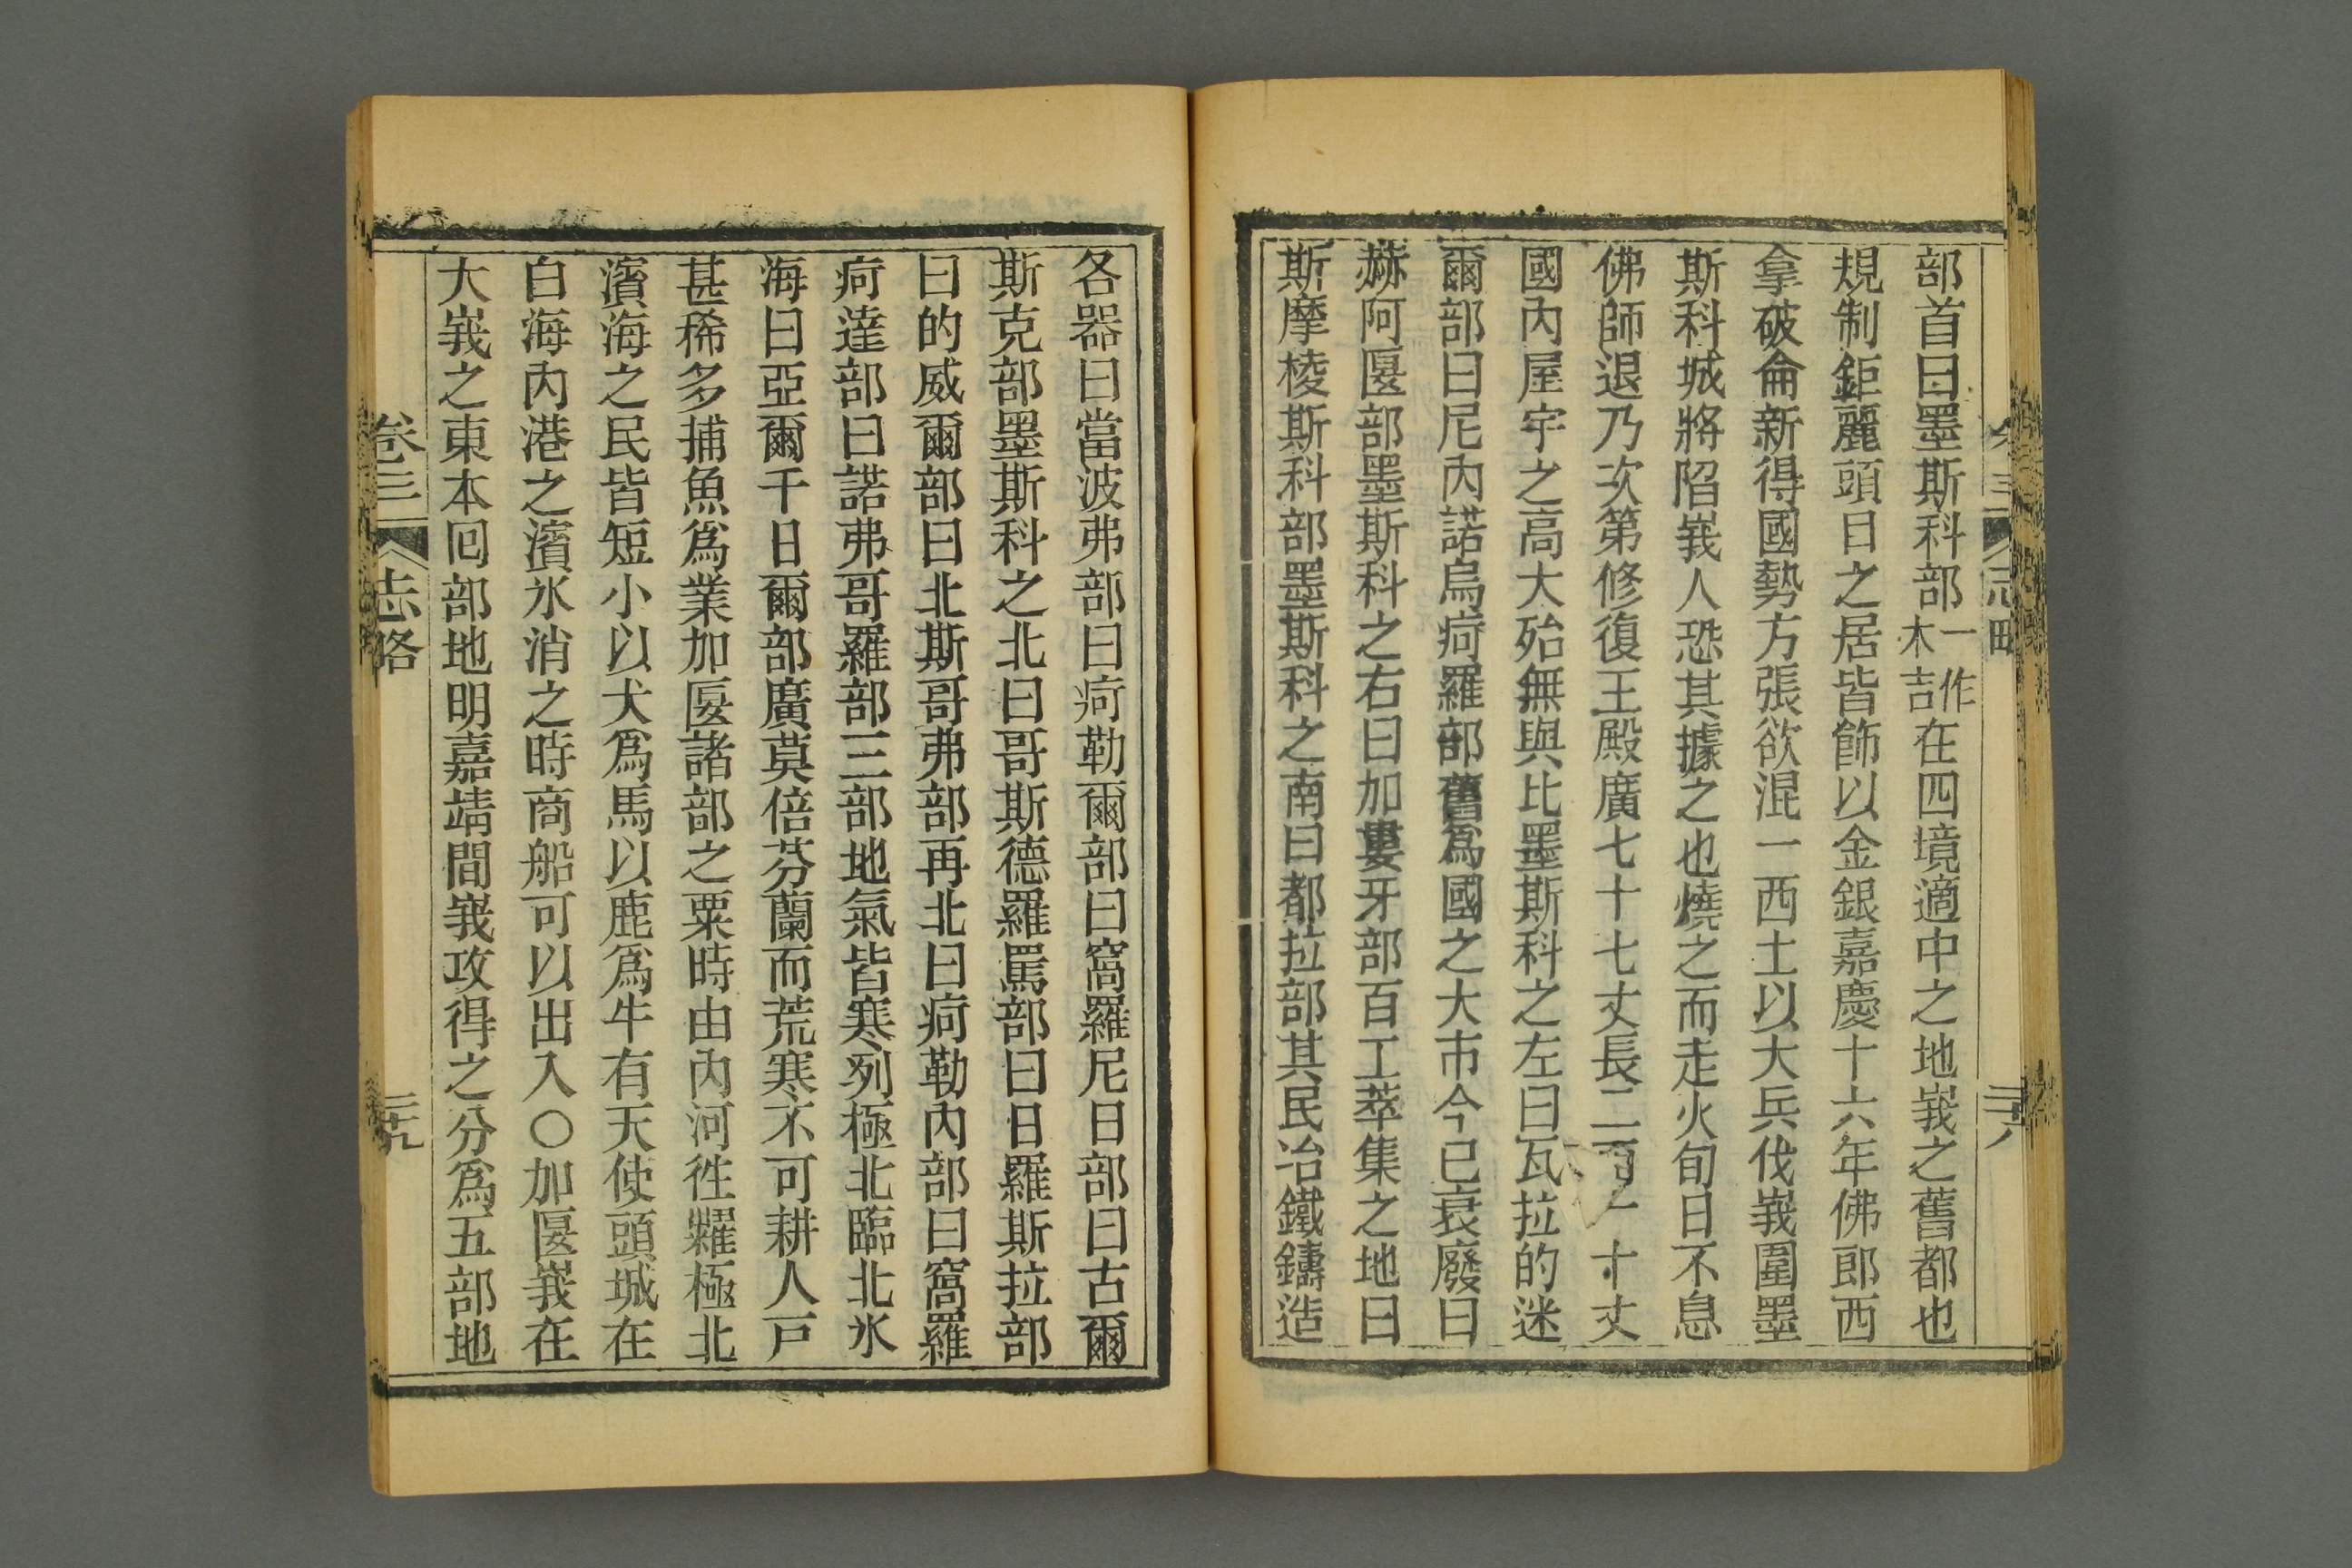 部首曰墨斯科部一作木吉在四境適中之地峩之舊都也
規制鉅麗頭目之居皆飾以金銀嘉慶十六年佛郎西
拿破侖新得國勢方張欲混一西土以大兵伐峩圍墨
斯科城將陷峩人恐其據之也燒之而走火旬日不息
佛師退乃次第修復王殿廣七十七丈長二百十丈
國內屋宇之高大殆無與比墨斯科之左曰瓦拉的迷
爾部曰尼內諾烏疴羅部舊爲國之大市今已衰廢曰
赫阿匽部墨斯科之右曰加婁牙部百工萃集之地曰
斯摩棱斯科部墨斯科之南曰都拉部其民冶鐵鑄造
各器曰當波弗部曰疴勒爾部曰窩羅尼日部曰古爾
斯克部墨斯科之北曰哥斯德羅罵部曰日羅斯拉部
曰的威爾部曰北斯哥弗部再北曰疴勒內部曰窩羅
疴達部曰諾弗哥羅部三部地氣皆寒冽極北臨北氷
海曰亞爾千日爾部廣莫倍芬蘭而荒寒不可耕人戸
甚稀多捕魚爲業加匽諸部之粟時由內河徃糶極北
濱海之民皆短小以犬爲馬以鹿爲牛有天使頭城在
白海內港之濱氷消之時商船可以出入〇加匽峩在
大峩之東本囘部地明嘉靖間峩攻得之分爲五部地
卷三 志略 三十九